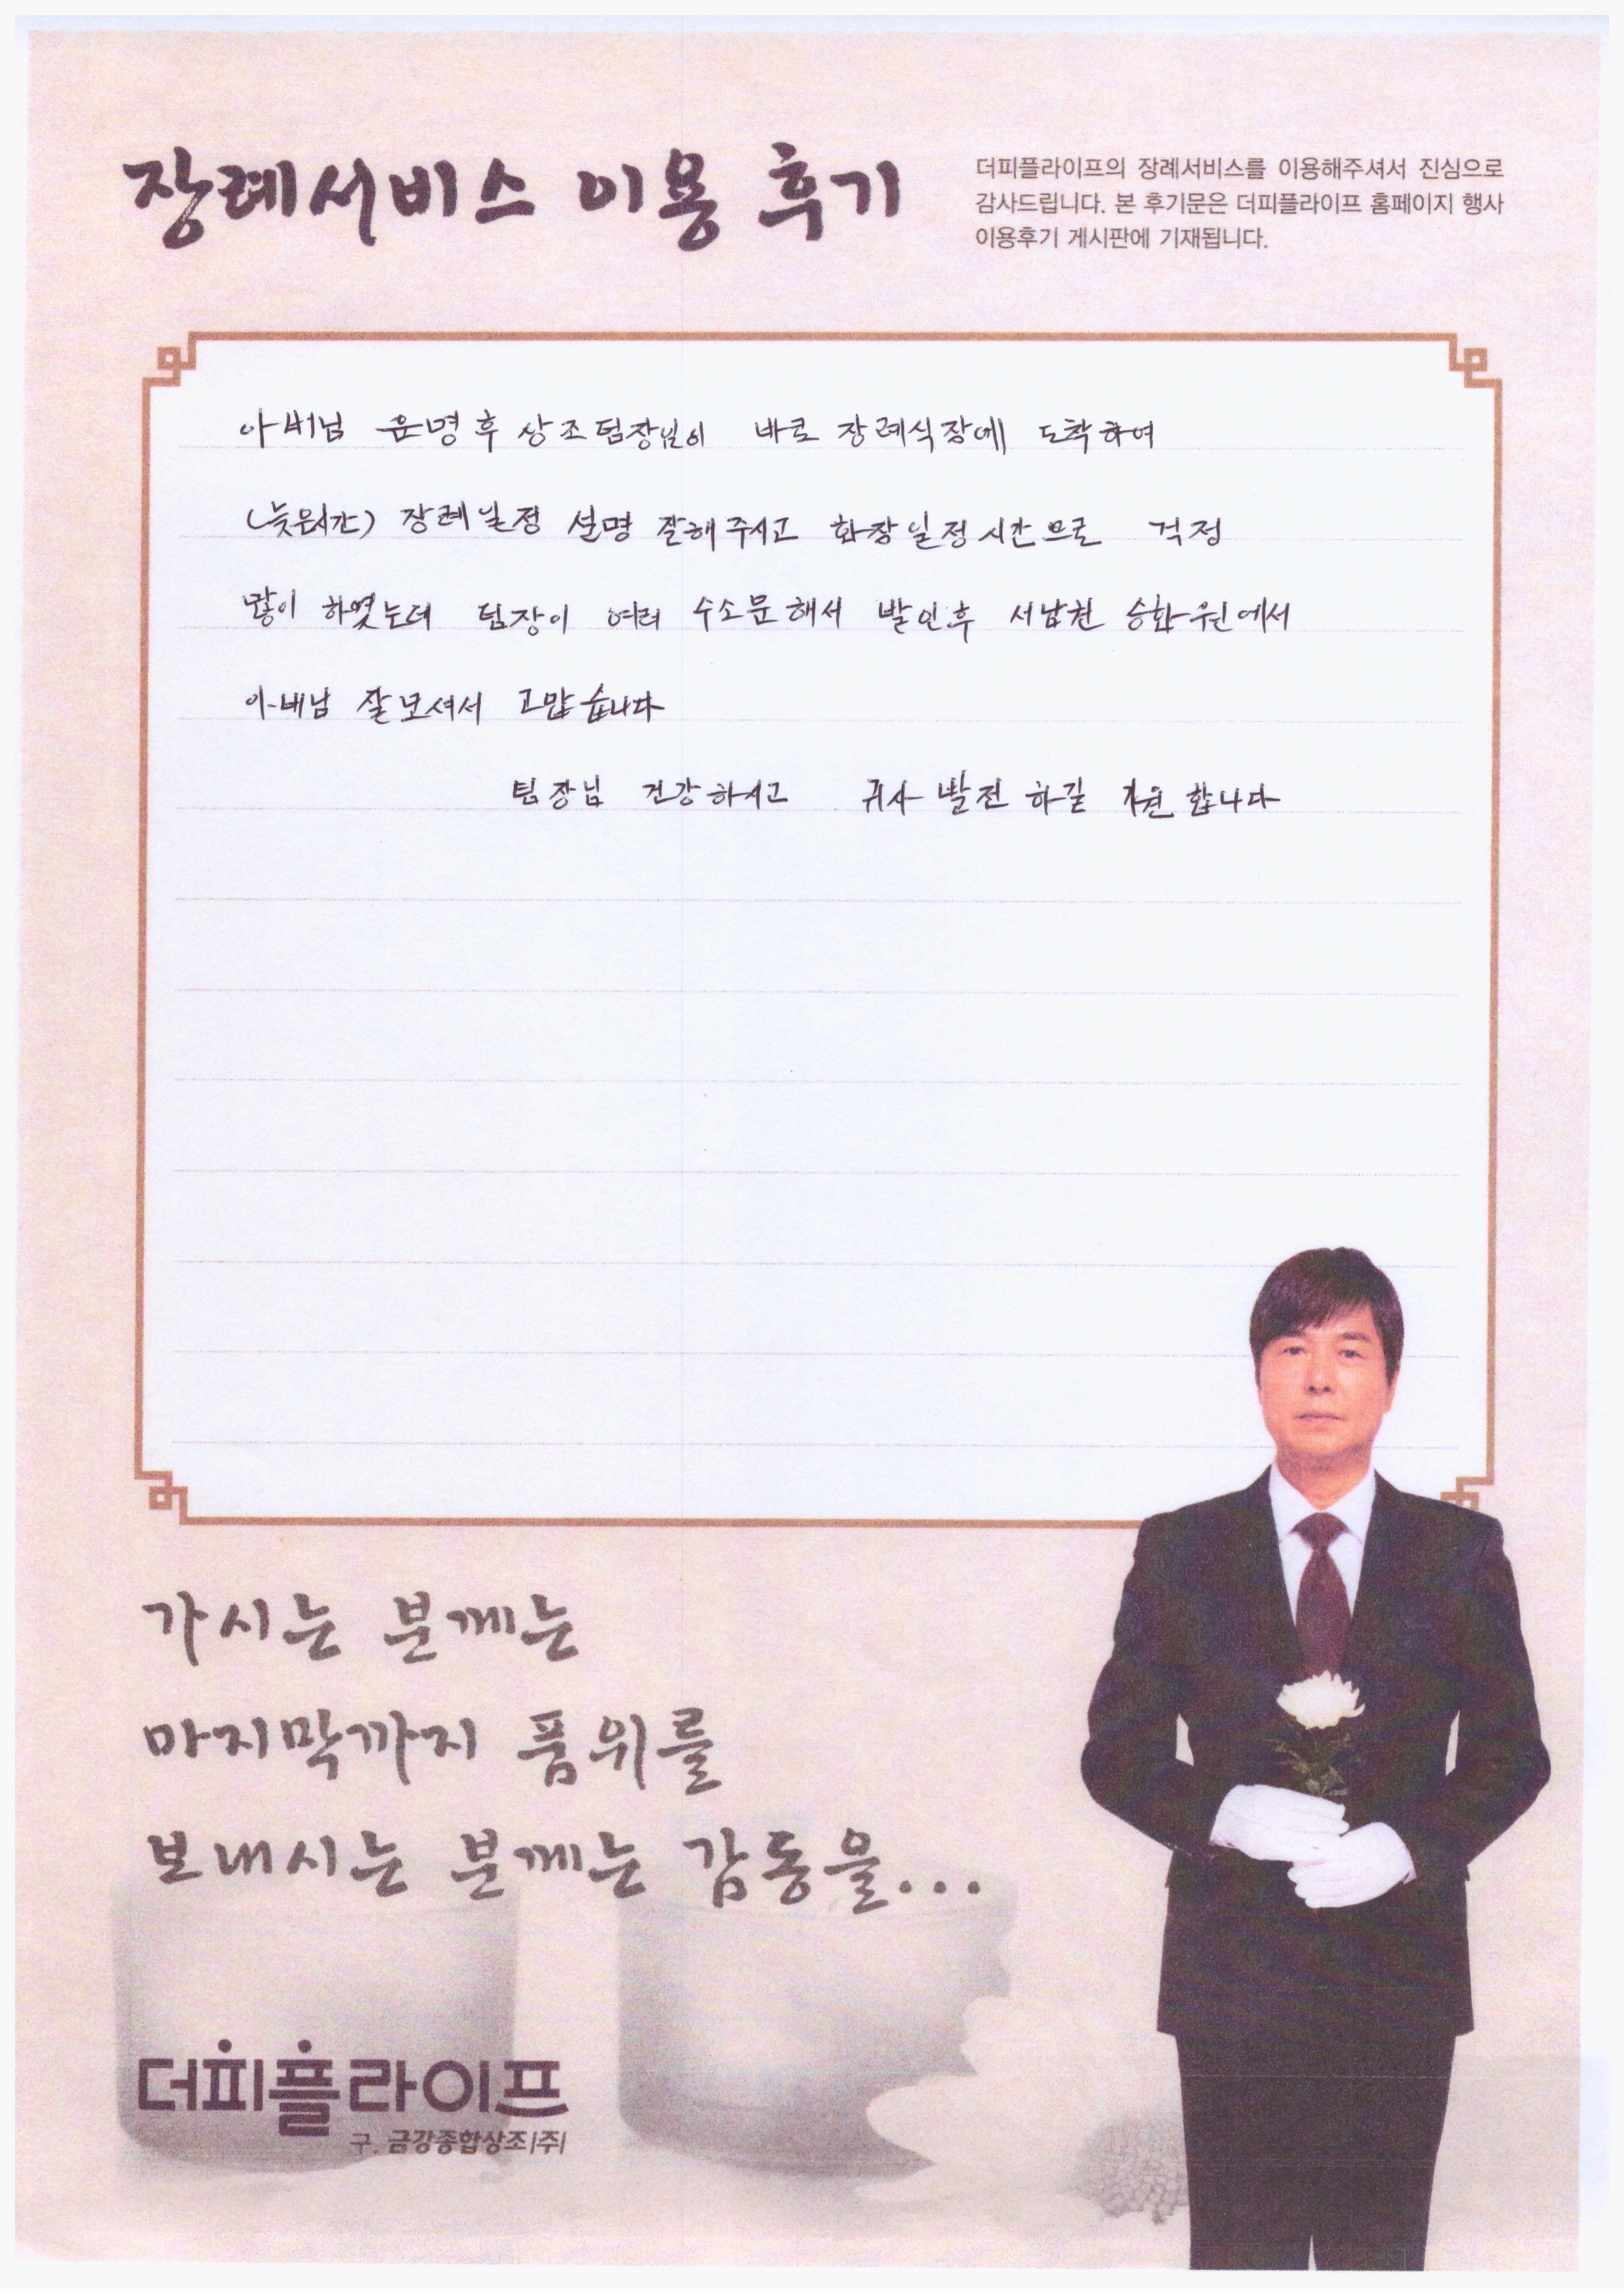 장례서비스 이용 후기
더피플라이프의 장례서비스를 이용해주셔서 진심으로
감사드립니다. 본 후기문은 더피플라이프 홈페이지 행사
이용후기 게시판에 기재됩니다.
아버님 운명후 상조팀장님이 바로 장례식장에 도착하여
(늦은시간) 장례일정 설명 잘해주시고 화장일정시간으로 걱정
많이 하였는데 팀장이 여러 수소문해서 발인후 서남권 승화원에서
아버님 잘모셔서 고맙습니다
팀장님 건강하시고 귀사 발전 하길 기원합니다
가시는 분께는
마지막까지 품위를
보내시는 분께는 감동을...
더피플라이프
구. 금강종합상조(주)